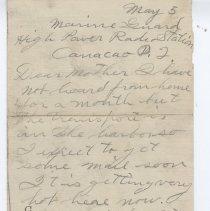 May 5
Marine Guard
High Power Radio Station
Canacao P. I
Dear Mother I have
not heard from home
for a month but
the transport is
in the harbor so
I expect to get
some mail soon
It is getting very
hot here now.